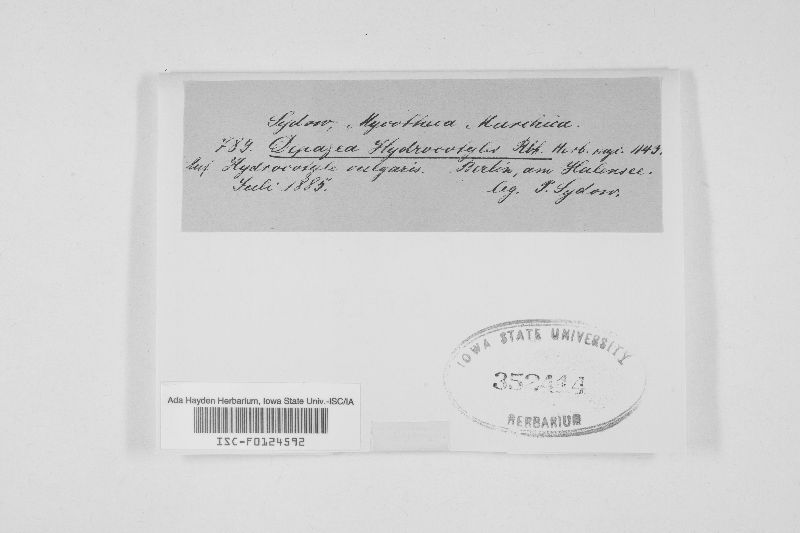 Sydow, Mycotheca Marchica.
789. Depazea Hydrocotylis Rbh. Herb. myc. 1143.
Auf Hydrocotyle vulgaris. Berlin, am Halensee.
Juli 1885. leg. P. Sydow.
IOWA STATE UNIVERSITY
352414
HERBARIUM
Ada Hayden Herbarium, Iowa State Univ.-ISC/IA
ISC-F0124592